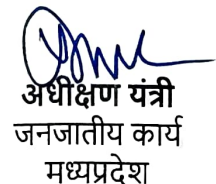 अधीक्षण यंत्री
जनजातीय कार्य
मध्यप्रदेश